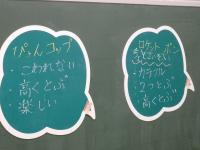 ぴょんコップ
・こわれない
・高くとぶ
・楽しい
ロケットポン
・カラフル
・2つとぶ
・高くとぶ